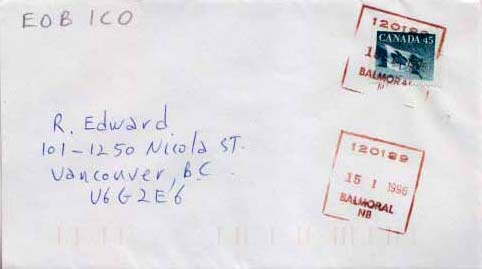 EOB ICO
120199
CANADA 45
BALMORAL
R. Edward
101-1250 Nicola ST.
Vancouver, B.C.
V6G2E6
120199
15 1 1996
BALMORAL
NB